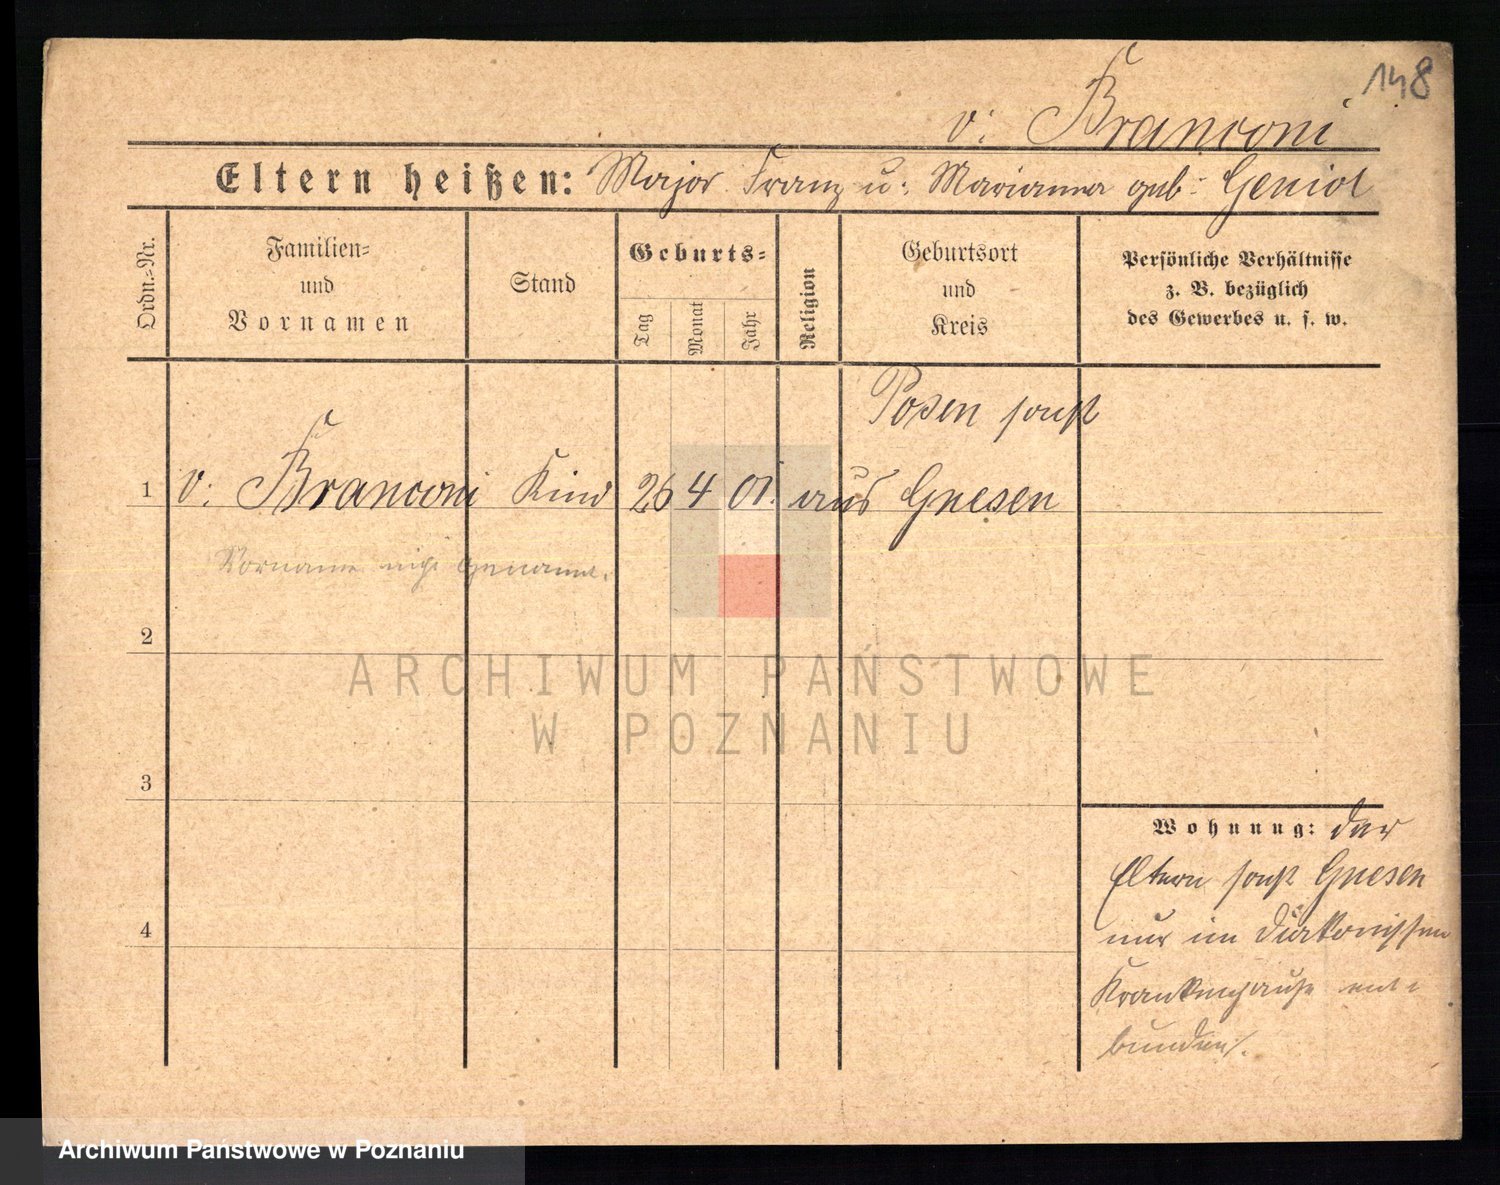 148
v. Branconi
Eltern heißen: Major Franz u. Marianna geb. Geniol
Ordn.-Nr.
Familien-
und
Vornamen
Stand
Geburts-
Tag
Monat
Jahr
Religion
Geburtsort
und
Kreis
Persönliche Verhältnisse
z. B. bezüglich
des Gewerbes u. s. w.
Posen sonst
1 v. Branconi Kind 26 4 01. aus Gnesen
Vorname nicht genannt.
2
ARCHIWUM PAŃSTWOWE
W POZNANIU
3
Wohnung: der
Eltern sonst Gnesen
nur im Diakonissen
4
Krankenhause ent-
bunden.
Archiwum Państwowe w Poznaniu